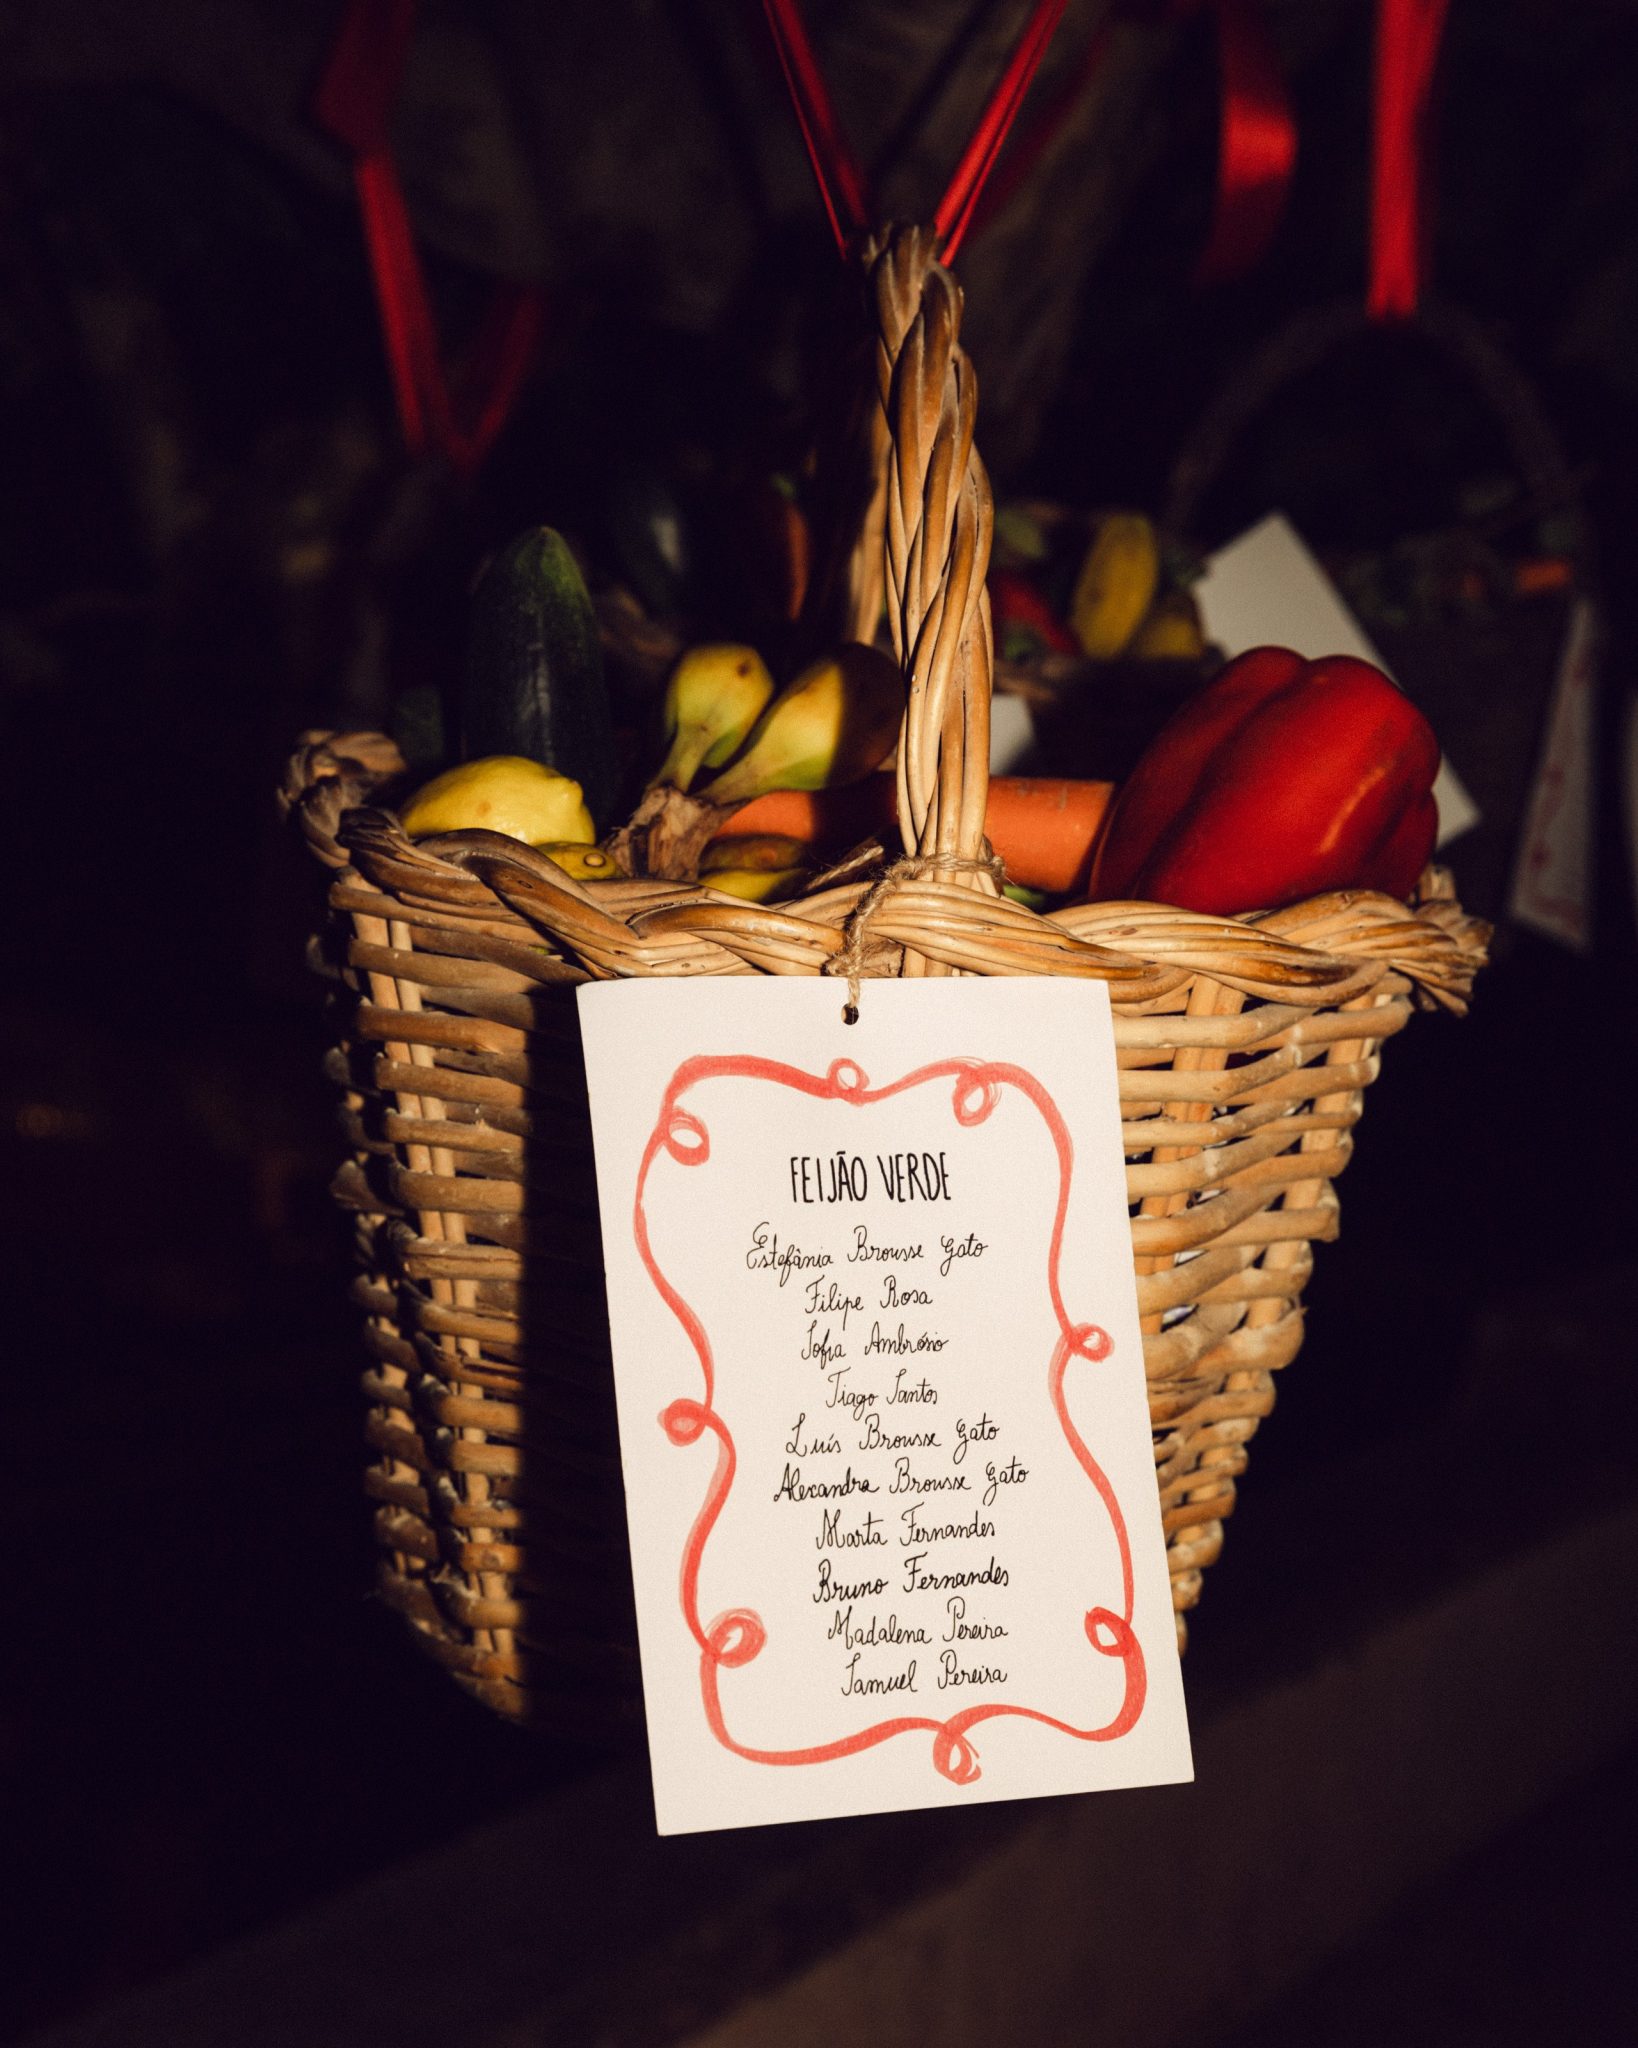 FEIJÃO VERDE
Estefânia Brousse Gato
Filipe Rosa
Sofia Ambrósio
Tiago Santos
Luís Brousse Gato
Alexandra Brousse Gato
Marta Fernandes
Bruno Fernandes
Madalena Pereira
Samuel Pereira